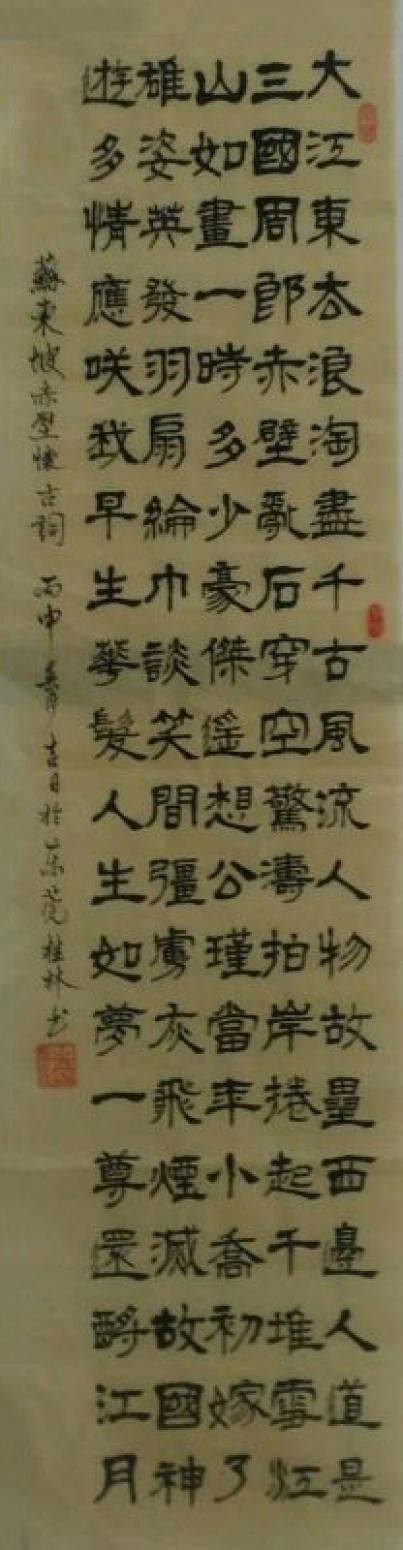 大江東去浪淘盡千古風流人物故壘西邊人道是
三國周郎赤壁亂石穿空驚濤拍岸捲起千堆雪江
山如畫一時多少豪傑遙想公瑾當年小喬初嫁了
雄姿英發羽扇綸巾談笑間彊虜灰飛煙滅故國神
遊多情應咲我早生華髮人生如夢一尊還酹江月
蘇東坡赤壁懷古詞 丙申 吉日於东莞桂林书